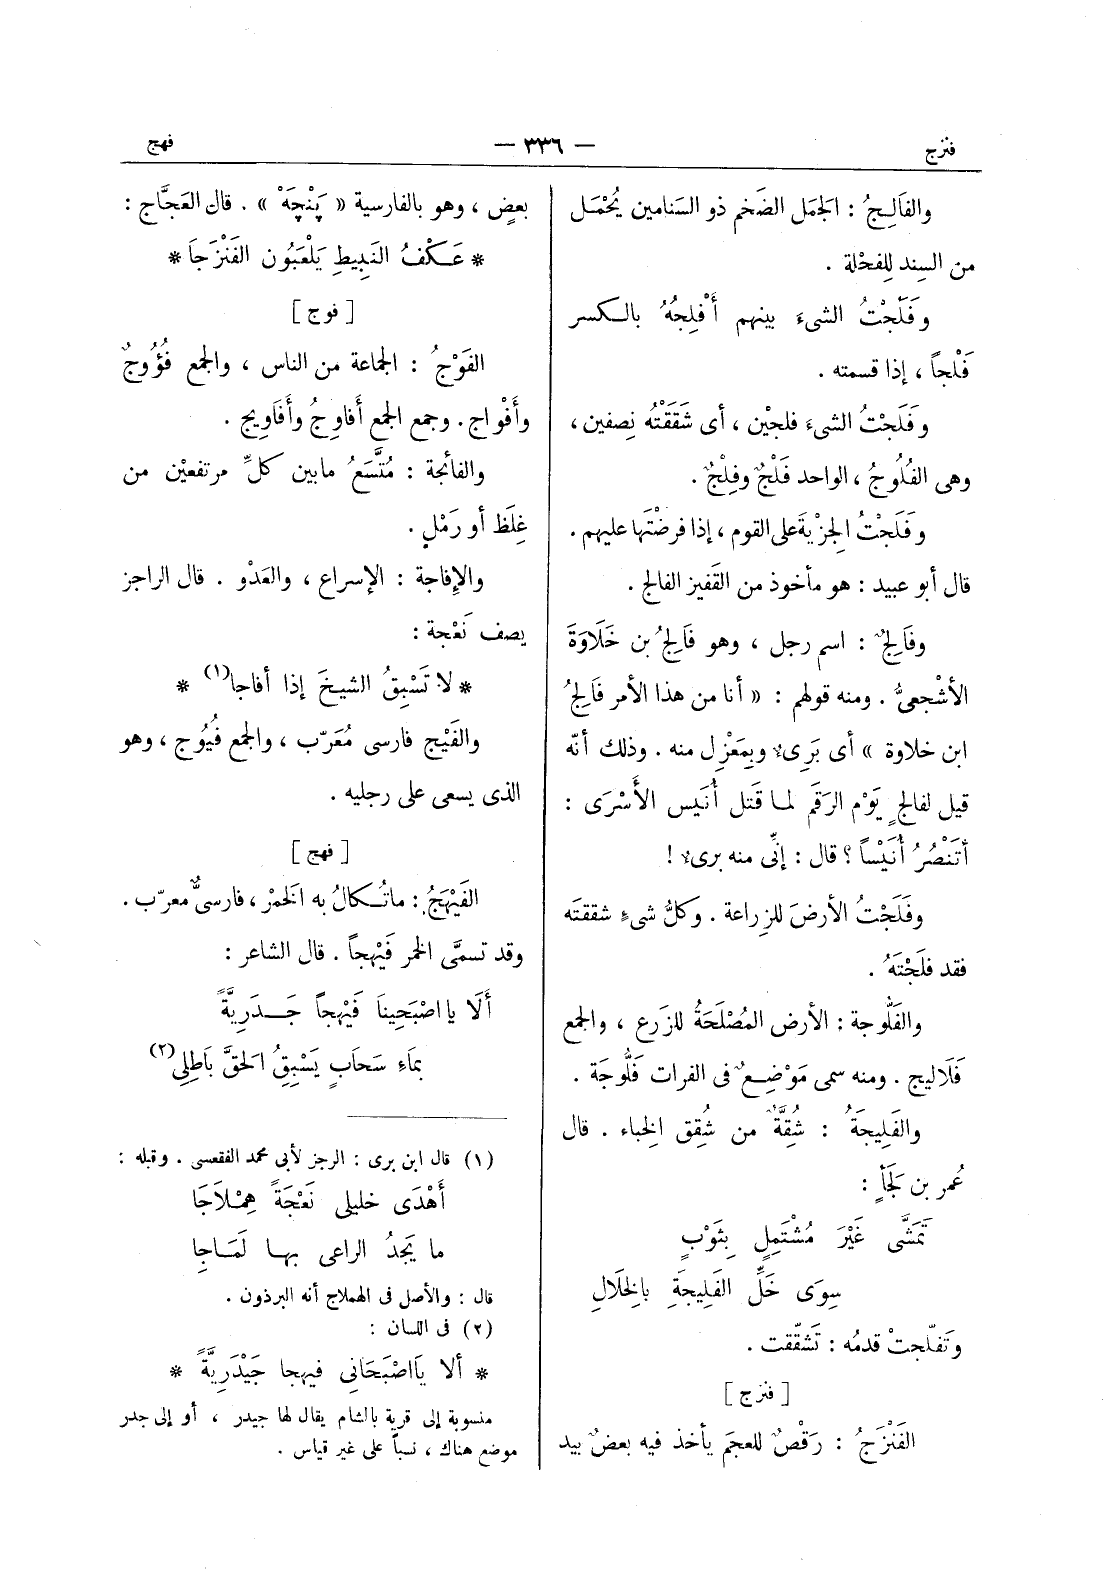 فنزج — ٣٣٦ — فهج
والفَالِجُ : الجمل الضَخم ذو السَنامين يُحْمَل
من السِند للِفحْلة .
وفَلَجْتُ الشىءَ بينهم أَفْلِجُهُ بالكسر
فَلْجاً ، إذا قسمته .
وفَلَجْتُ الشىءَ فلجيْن ، أى شَقَقْتُه نِصفين ،
وهى الفُلُوجُ ، الواحد فَلْجٌ وفِلْجٌ .
وفَلَجْتُ الجِزْيةَ على القوم ، إذا فرضْتَها عليهم .
قال أبو عبيد : هو مأخوذ من القَفيز الفالج .
وفَالِجٌ : اسم رجل ، وهو فَالِجُ بن خَلَاوَةَ
الأشْجعىُّ . ومنه قولهم : « أنا من هذا الأمر فَالِجُ
ابن خلاوة » أى بَرِىء وبِمَعْزِل منه . وذلك أنّه
قيل لفالجٍ يَوْم الرَقَم لما قَتل أُنَيس الأَسْرَى :
أتَنْصُرُ أُنَيْساً ؟ قال : إنِّى منه برىء !
وفَلَجْتُ الأرضَ للزِراعة . وكلُّ شىءٍ شققتَه
فقد فلَجْتَهُ .
والفَلُّوجة : الأرض المُصْلَحَةُ للزَرع ، والجمع
فَلَاليج . ومنه سمى مَوْضِعٌ فى الفرات فَلُّوجَة .
والفَلِيجَةُ : شُقَّةٌ من شُقِق الخِباء . قال
عُمر بن لَجَأٍ :
تَمَشَّى غَيْرَ مُشْتَمِلٍ بِثَوْبٍ
سِوَى خَلِّ الفَلِيجَةِ بالخِلَالِ
وتَفلّجتْ قدمُه : تَشقّقت .
[ فنزج ]
الفَنْزَجُ : رَقْصٌ للعجَم يأخذ فيه بعضٌ بيد
بعضٍ ، وهو بالفارسية « پَنْچَهْ » . قال العَجَّاج :
* عَكْفُ النَبِيطِ يَلْعَبُون الفَنْزَجَا *
[ فوج ]
الفَوْجُ : الجماعة من الناس ، والجمع فُؤُوجٌ
وأَفْواج . وجمع الجمع أَفاوِجُ وأَفَاوِيج .
والفائجة : مُتَّسَعُ مابين كلِّ مرتفعيْن من
غِلَظ أو رَمْلٍ .
والإِفاجة : الإسراع ، والعَدْو . قال الراجز
يصف نَعْجة :
* لا تَسْبِقُ الشيخَ إذا أفاجا(١) *
والفَيْج فارسى مُعَرّب ، والجمع فُيُوج ، وهو
الذى يسعى على رجليه .
[ فهج ]
الفَيْهَجُ : ماتُكالُ به الخَمْر ، فارسىٌّ معرّب .
وقد تسمَّى الخمر فَيْهجاً . قال الشاعر :
أَلَا يا اصْبَحِينَا فَيْهجاً جَدَرِيَّةً
بمَاءِ سَحَابٍ يَسْبِقُ الحَقَّ بَاطِلِى(٢)
(١) قال ابن برى : الرجز لأبى محمد الفقعسى . وقبله :
أَهْدَى خليلى نَعْجَةً هِمْلَاجَا
ما يَجِدُ الراعى بها لَمَاجا
قال : والأصل فى الهملاج أنه البرذون .
(٢) فى اللسان :
* ألا يَا اصْبَحَانِى فيهجا جَيْدَرِيَّةً *
منسوبة إلى قرية بالشام يقال لها جيدر ، أو إلى جدر
موضع هناك ، نسباً على غير قياس .